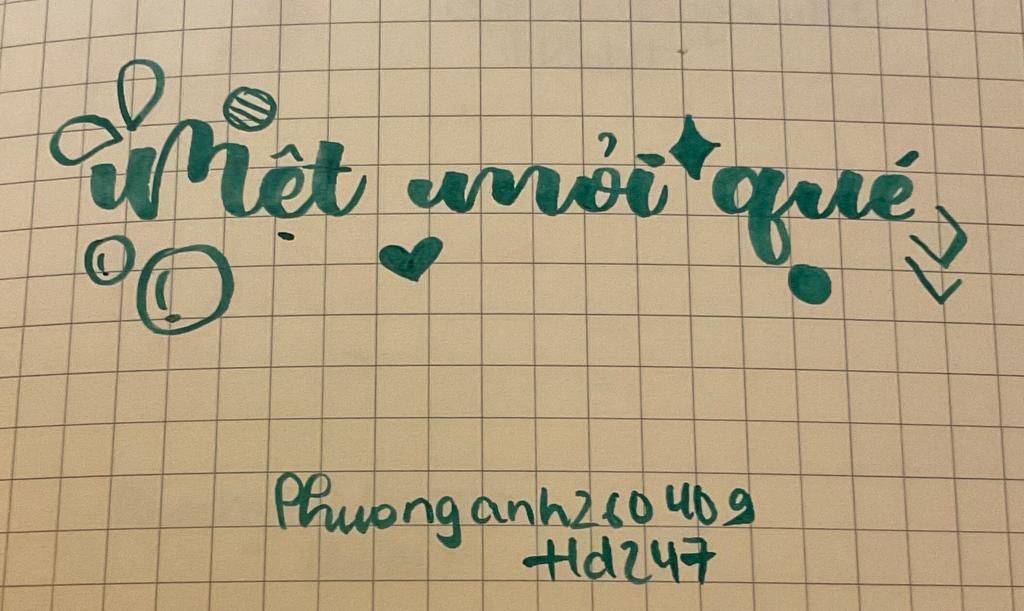 Mệt mỏi qué
Phuonganh260409
Hd247